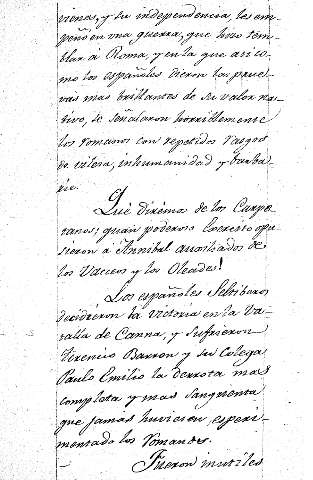 vienas, y su independencia, les em-
peñó en una guerra, que hizo tem-
blar á Roma, y en la que asi co-
mo los españoles dieron las prue-
vas mas brillantes de su valor na-
tivo, se señalaron horriblemente
los romanos con repetidos rasgos
de vileza, inhumanidad y barba-
rie.
Qué dirémos de los Carpe-
tanos; quan poderoso exercito opu-
sieron á Annibal auxiliados de
los Vacceos y los Oleades!
Los españoles Seltiberos
decidieron la victoria en la Ba-
talla de Canna, y sufrieron
Terencio Barron y su Colega
Paulo Emilio la derrota mas
completa y mas sangrienta
que jamas huvicion esperi-
mentado los Romanos.
Fueron inutiles